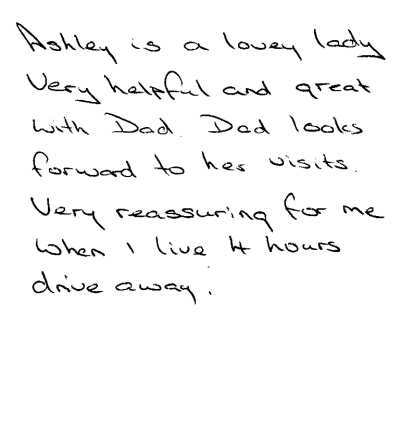 Ashley is a lovey lady
Very helpful and great
with Dad. Dad looks
forward to her visits.
Very reassuring for me
when I live 4 hours
drive away.